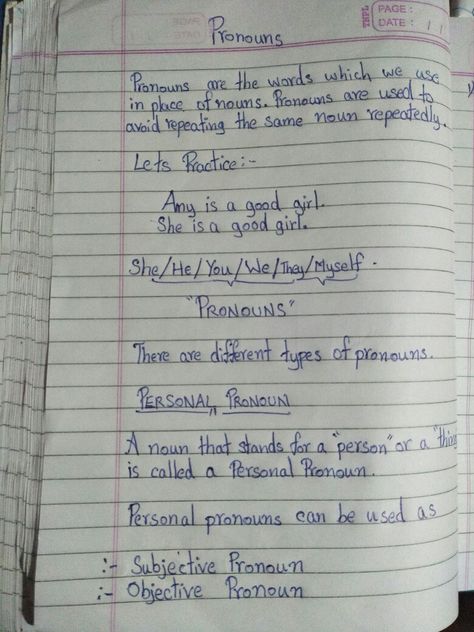 TNPL PAGE :
DATE : / /
Pronouns
Pronouns are the words which we use
in place of nouns. Pronouns are used to
avoid repeating the same noun repeatedly.
Lets Practice:-
Amy is a good girl.
She is a good girl.
She/He/You/We/They/Myself.
"PRONOUNS"
There are different types of pronouns.
PERSONAL PRONOUN
A noun that stands for a "person" or a "thin
is called a Personal Pronoun.
Personal pronouns can be used as
:- Subjective Pronoun
:- Objective Pronoun